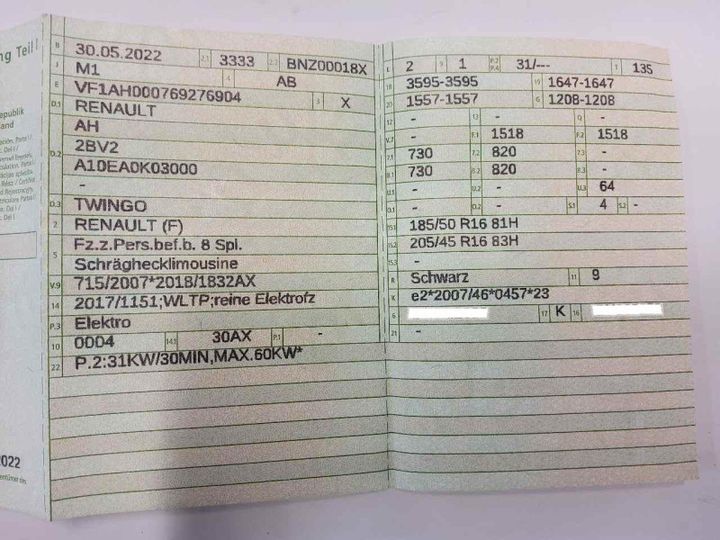 ng Teil I
B 30.05.2022 2.1 3333 2.2 BNZ00018X
J M1 4 AB
E VF1AH000769276904 3 X
D.1 RENAULT
AH
D.2 2BV2
A10EA0K03000
-
D.3 TWINGO
2 RENAULT (F)
Fz.z.Pers.bef.b. 8 Spl.
5 Schräghecklimousine
V.9 715/2007*2018/1832AX
14 2017/1151;WLTP;reine Elektrofz
P.3 Elektro
10 0004 14.1 30AX P.1 -
22 P.2:31KW/30MIN,MAX.60KW*
L 2 9 1 P.2 P.4 31/--- T 135
18 3595-3595 19 1647-1647
20 1557-1557 G 1208-1208
12 - 13 - Q -
V.7 - F.1 1518 F.2 1518
7.1 730 7.2 820 7.3 -
8.1 730 8.2 820 8.3 -
U.1 - U.2 - U.3 64
O.1 - O.2 - S.1 4 S.2 -
15.1 185/50 R16 81H
15.2 205/45 R16 83H
15.3 -
R Schwarz 11 9
K e2*2007/46*0457*23
6 17 K 16
21 -
2022